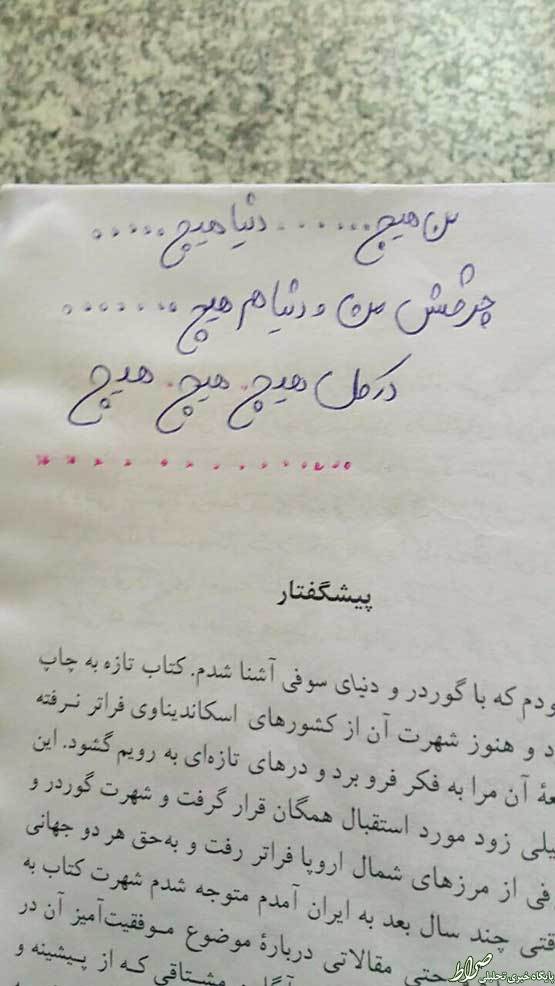 من هیچ....... دنیا هیچ.....
چرخش من و دنیا هم هیچ .......
در کل هیچ. هیچ. هیچ
پیشگفتار
ودم که با گوردر و دنیای سوفی آشنا شدم. کتاب تازه به چاپ
د و هنوز شهرت آن از کشورهای اسکاندیناوی فراتر نرفته
عهٔ آن مرا به فکر فرو برد و درهای تازه‌ای به رویم گشود. این
یلی زود مورد استقبال همگان قرار گرفت و شهرت گوردر و
فی از مرزهای شمال اروپا فراتر رفت و به‌حق هر دو جهانی
قتی چند سال بعد به ایران آمدم متوجه شدم شهرت کتاب به
حتی مقالاتی دربارهٔ موضوع موفقیت‌آمیز آن در
مشتاقی که از پیشینه و
صراط
پایگاه خبری تحلیلی